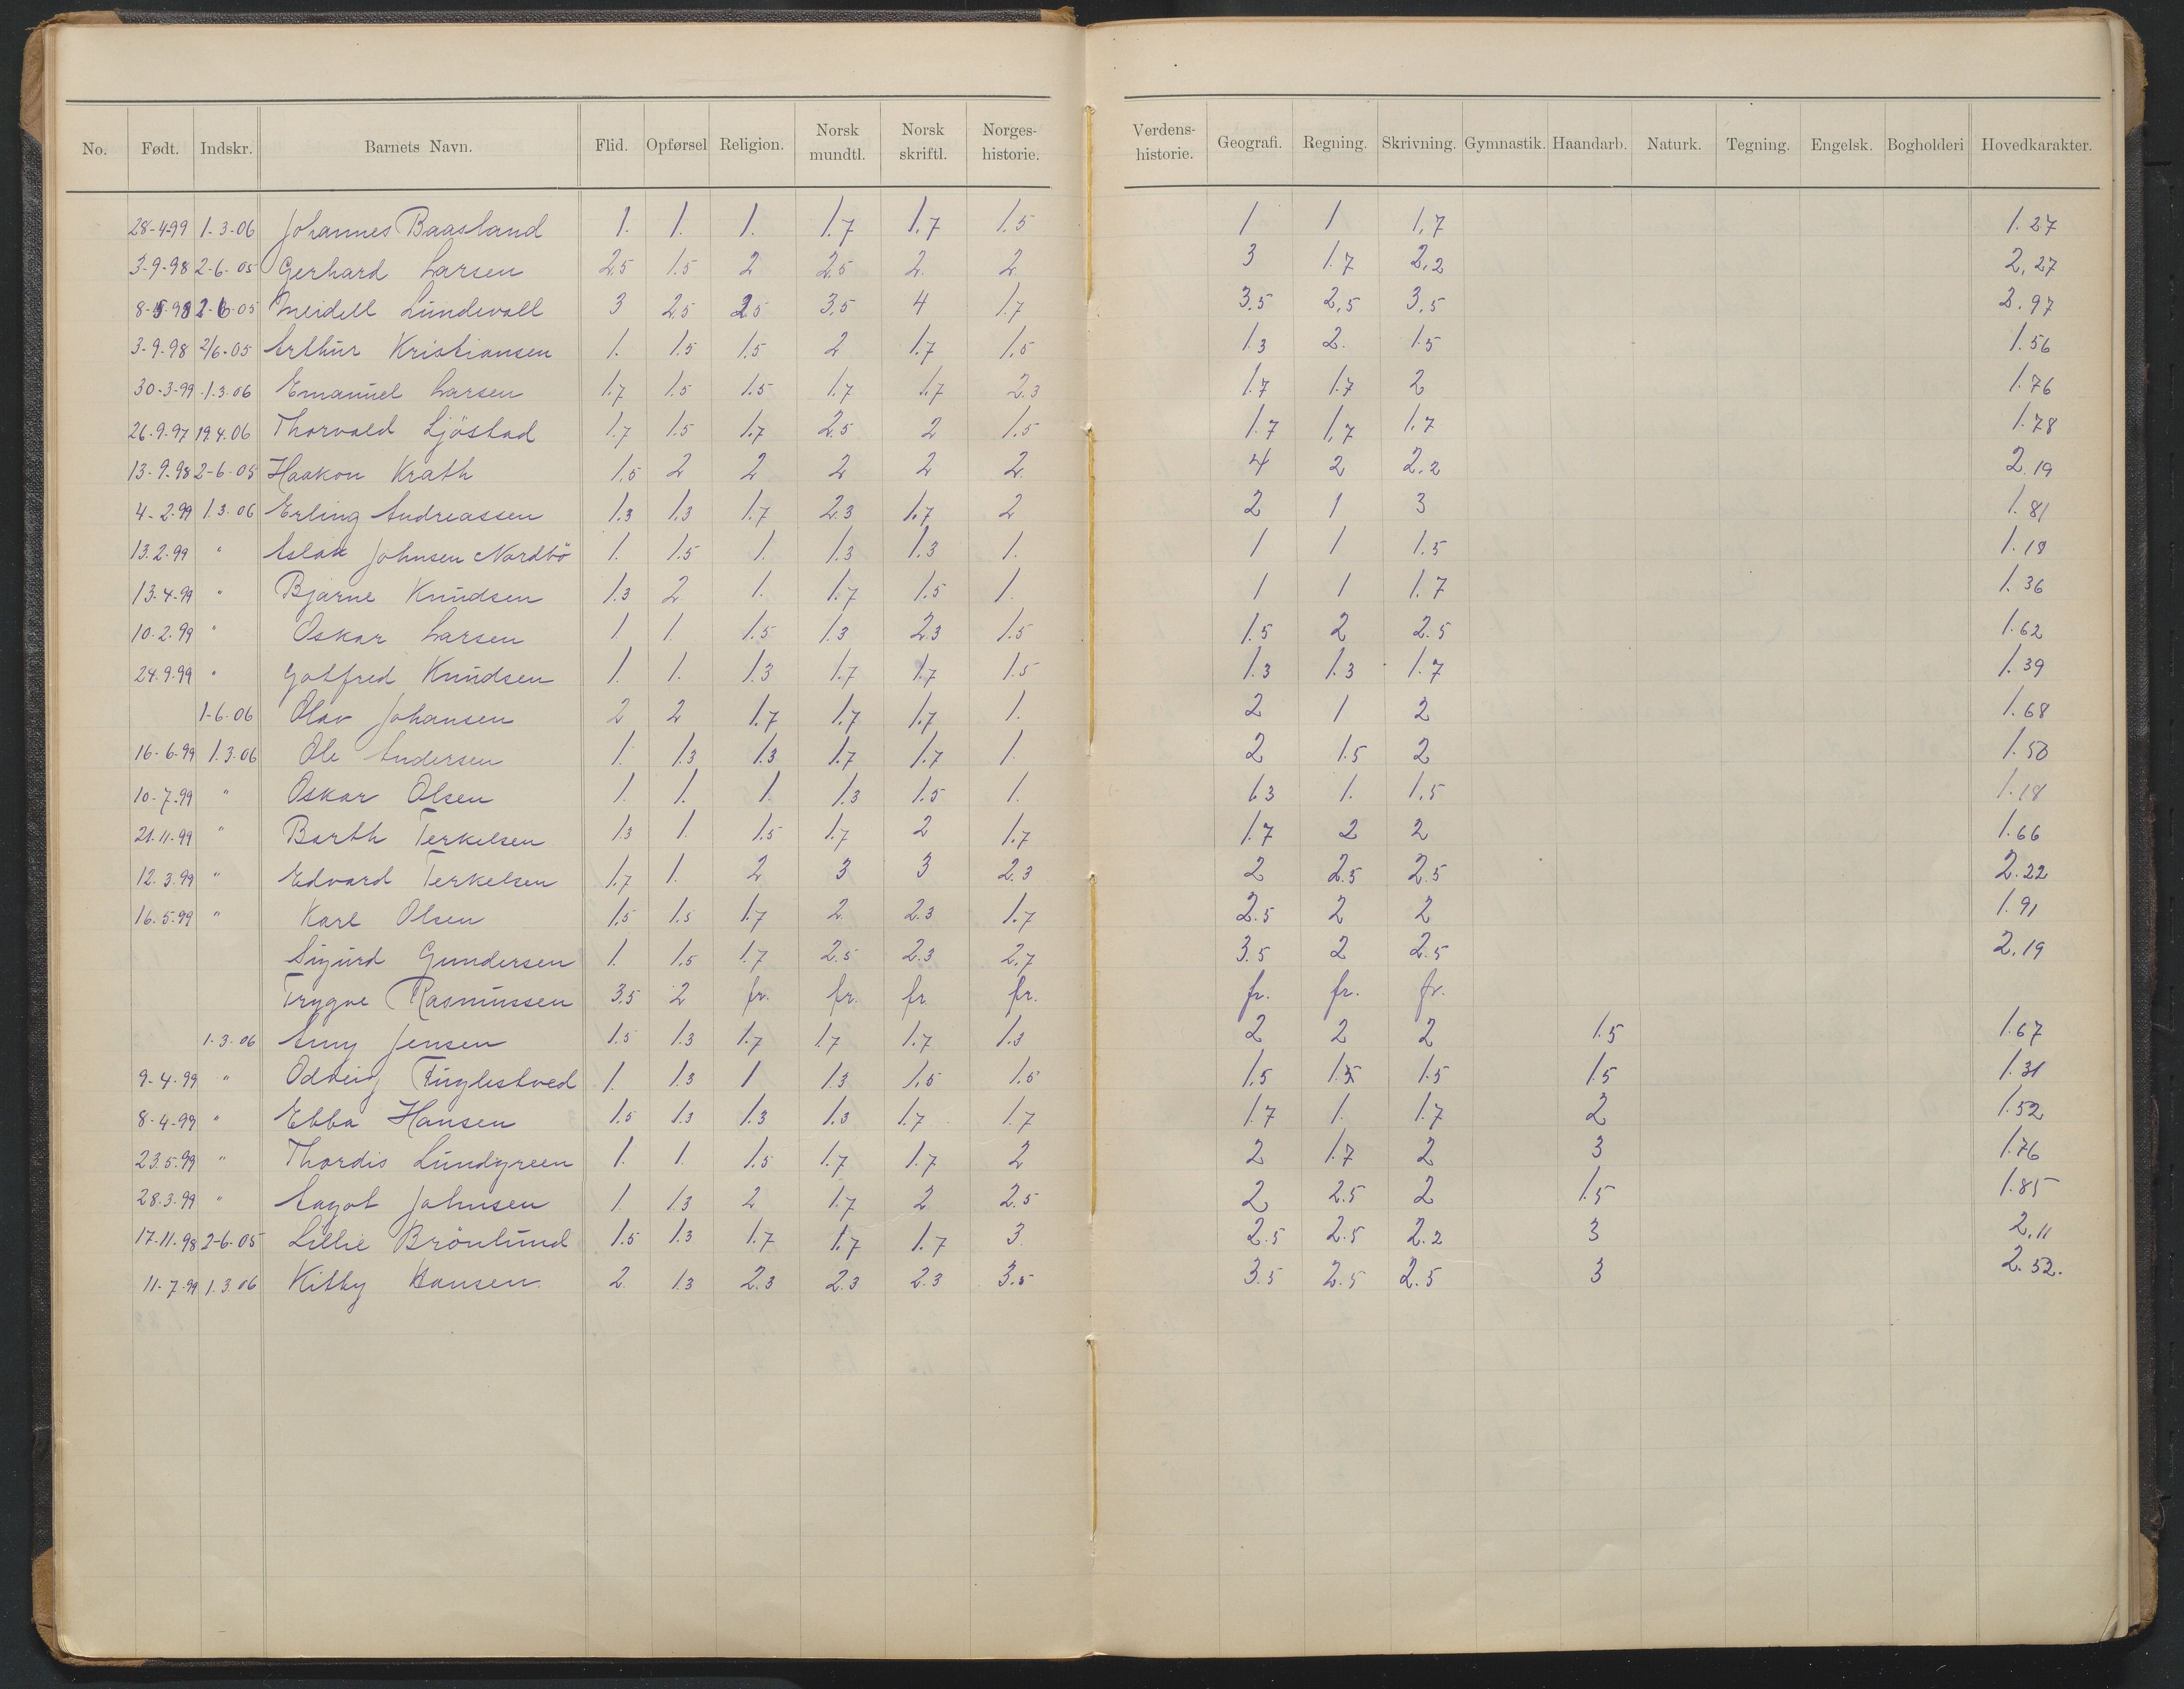 No. Født. Indskr. Barnets Navn. Flid. Opførsel Religion. Norsk mundtl. Norsk skriftl. Norges-historie. Verdens-historie. Geografi. Regning. Skrivning. Gymnastik. Haandarb. Naturk. Tegning. Engelsk. Bogholderi Hovedkarakter.
28-4-99 1-3-06 Johannes Baasland 1. 1. 1. 1.7 1.7 1.5 1 1 1,7 1.27
3-9-98 2-6-05 Gerhard Larsen 2.5 1.5 2 2.5 2. 2. 3 1.7 2,2 2,27
8-5-98 2-6-05 Meidell Lundevall 3 2.5 2.5 3.5 4 1.7 3.5 2,5 3,5 2.97
3-9-98 2/6-05 Arthur Kristiansen 1. 1.5 1.5 2 1.7 1.5 1.3 2. 1.5 1.56
30-3-99 1.3.06 Emanuel Larsen 1.7 1.5 1.5 1.7 1.7 2.3 1.7 1.7 2 1.76
26-9-97 19.4.06 Thorvald Ljöstad 1.7 1.5 1.7 2.5 2 1.5 1.7 1,7 1.7 1.78
13-9-98 2-6-05 Haakon Krath 1.5 2 2 2 2 2. 4 2 2.2 2.19
4-2-99 1.3.06 Erling Andreassen 1.3 1.3 1.7 2.3 1.7 2 2 1 3 1.81
13.2-99 " Aslak Johnsen Nordbö 1. 1.5 1. 1.3 1.3 1. 1 1 1.5 1.18
13-4-99 " Bjarne Knudsen 1.3 2 1. 1.7 1.5 1. 1 1 1.7 1.36
10-2.99 " Oskar Larsen 1 1. 1.5 1.3 2.3 1.5 1.5 2 2.5 1.62
24.9.99 " Gotfred Knudsen 1. 1. 1.3 1.7 1.7 1.5 1.3 1.3 1.7 1.39
1-6-06 Olav Johansen 2 2 1.7 1.7 1.7 1. 2 1 2 1.68
16-6-99 1.3.06 Ole Andersen 1. 1.3 1.3 1.7 1.7 1. 2 1.5 2 1.50
10-7-99 " Oskar Olsen 1. 1. 1. 1.3 1.5 1. 1.3 1. 1.5 1.18
21.11-99 " Barth Terkelsen 1.3 1. 1.5 1.7 2 1.7 1.7 2 2 1.66
12.3.99 " Edvard Terkelsen 1.7 1. 2 3 3 2.3 2 2.5 2.5 2.22
16.5.99 " Karl Olsen 1.5 1.5 1.7 2. 2.3 1.7 2.5 2 2 1.91
Sigurd Gundersen 1. 1.5 1.7 2.5 2.3 2.7 3.5 2 2.5 2.19
Trygve Rasmussen 3.5 2 fr. fr. fr. fr. fr. fr. fr.
1-3-06 Amy Jensen 1.5 1.3 1.7 1.7 1.7 1.3 2 2 2 1.5 1.67
9-4-99 " Odveig Fuglestved 1. 1.3 1 1.3 1.5 1.5 1.5 1.5 1.5 1.31
8-4-99 " Ebba Hansen 1.5 1.3 1.3 1.3 1.7 1.7 1.7 1. 1.7 2 1.52
23.5.99 " Thordis Lundgreen 1. 1. 1.5 1.7 1.7 2 2 1.7 2 3 1.76
28.3.99 " Aagot Johnsen 1. 1.3 2 1.7 2 2.5 2 2.5 2 1.5 1.85
17-11-98 2-6-05 Lillie Brönlund 1.5 1.3 1.7 1.7 1.7 3. 2.5 2.5 2.2 3 2.11
11-7-99 1.3.06 Kitty Hansen 2. 1.3 2.3 2.3 2.3 3.5 3.5 2.5 2.5 3 2.52.